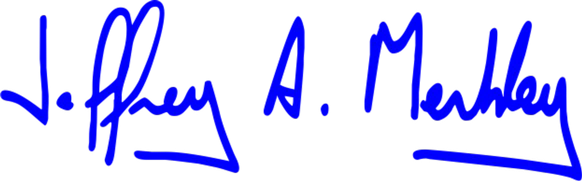 Jeffrey A. Merkley